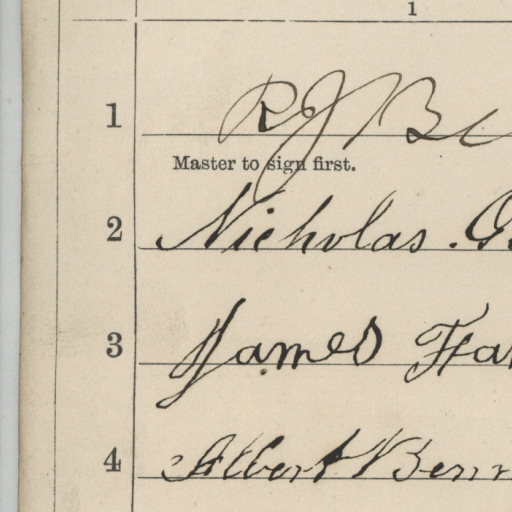 1
1 R J B
Master to sign first.
2 Nicholas
3 James
4 Albert